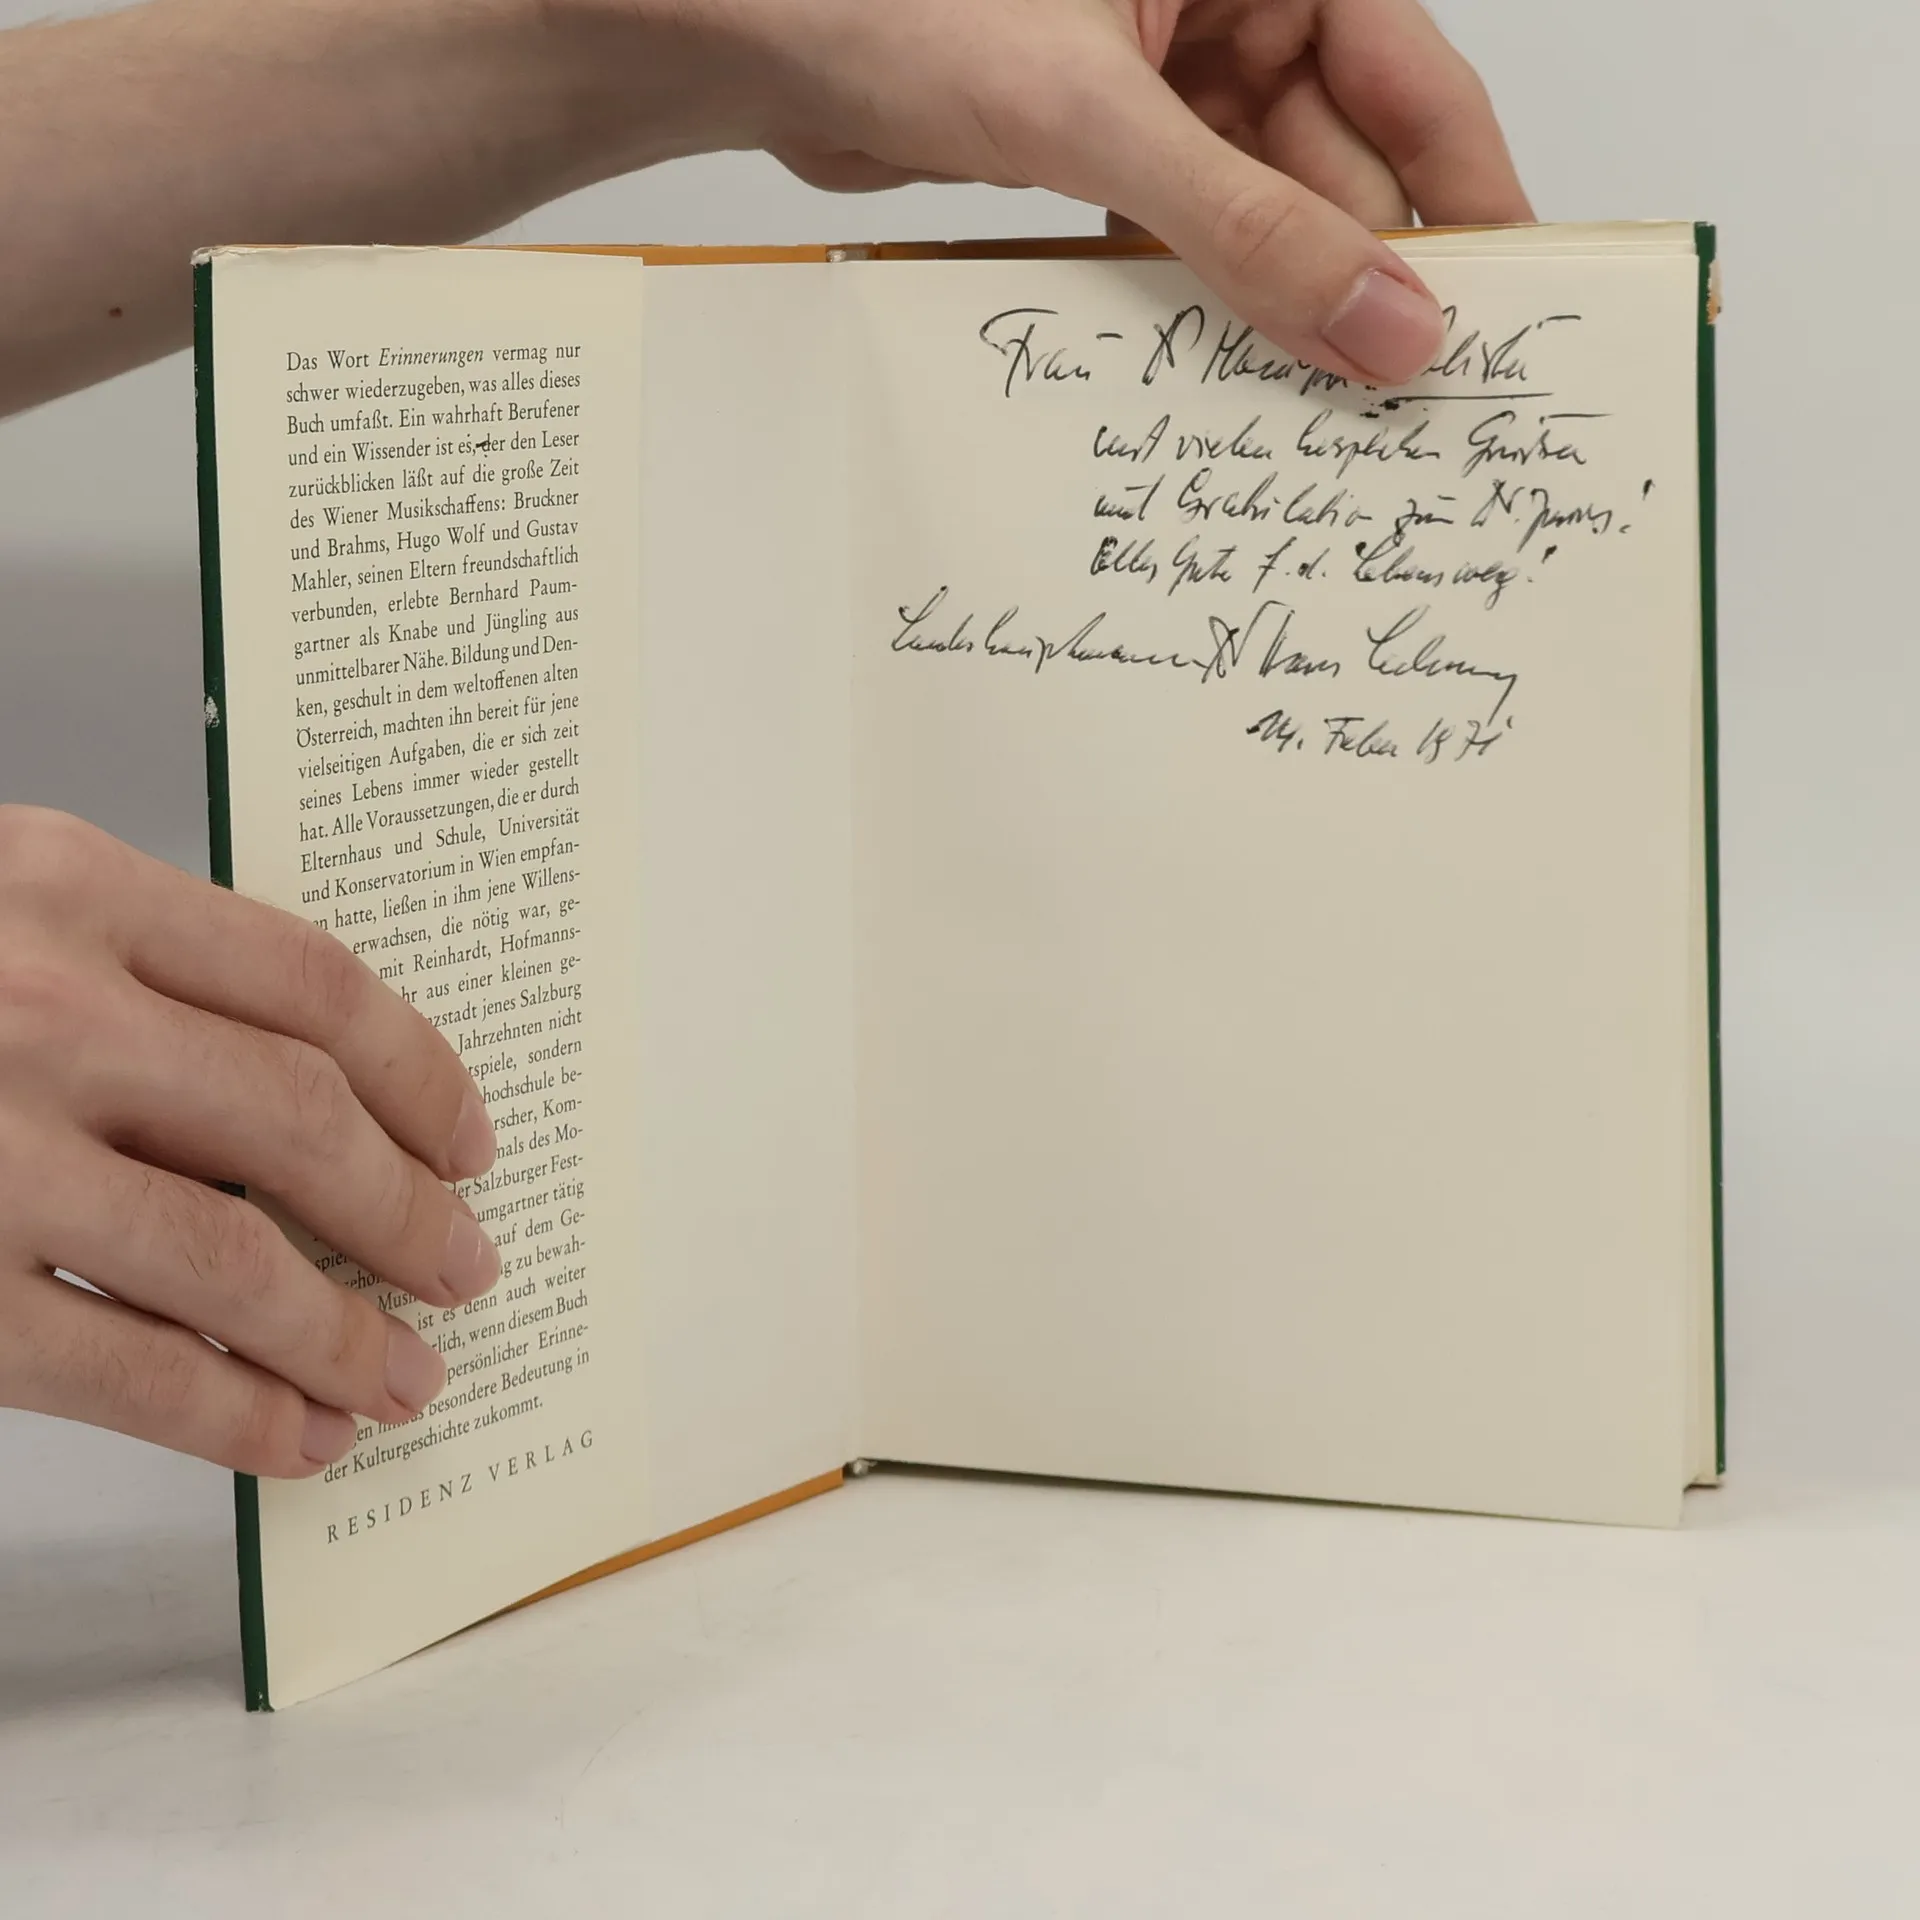 Das Wort Erinnerungen vermag nur
schwer wiederzugeben, was alles dieses
Buch umfaßt. Ein wahrhaft Berufener
und ein Wissender ist es, der den Leser
zurückblicken läßt auf die große Zeit
des Wiener Musikschaffens: Bruckner
und Brahms, Hugo Wolf und Gustav
Mahler, seinen Eltern freundschaftlich
verbunden, erlebte Bernhard Paum-
gartner als Knabe und Jüngling aus
unmittelbarer Nähe. Bildung und Den-
ken, geschult in dem weltoffenen alten
Österreich, machten ihn bereit für jene
vielseitigen Aufgaben, die er sich zeit
seines Lebens immer wieder gestellt
hat. Alle Voraussetzungen, die er durch
Elternhaus und Schule, Universität
und Konservatorium in Wien empfan-
en hatte, ließen in ihm jene Willens-
erwachsen, die nötig war, ge-
mit Reinhardt, Hofmanns-
hr aus einer kleinen ge-
nzstadt jenes Salzburg
Jahrzehnten nicht
tspiele, sondern
hochschule be-
rscher, Kom-
mals des Mo-
der Salzburger Fest-
umgartner tätig
auf dem Ge-
spie g zu bewah-
geho ist es denn auch weiter
Mus rlich, wenn diesem Buch
persönlicher Erinne-
gen hinaus besondere Bedeutung in
der Kulturgeschichte zukommt.
RESIDENZ VERLAG
Frau Dr
mit vielen herzlichen Grüßen
und Gratulation zum Dr. !
Alles Gute f. d. Lebensweg!
Landeshauptmann Dr Hans Lechner
14. Feber 1971